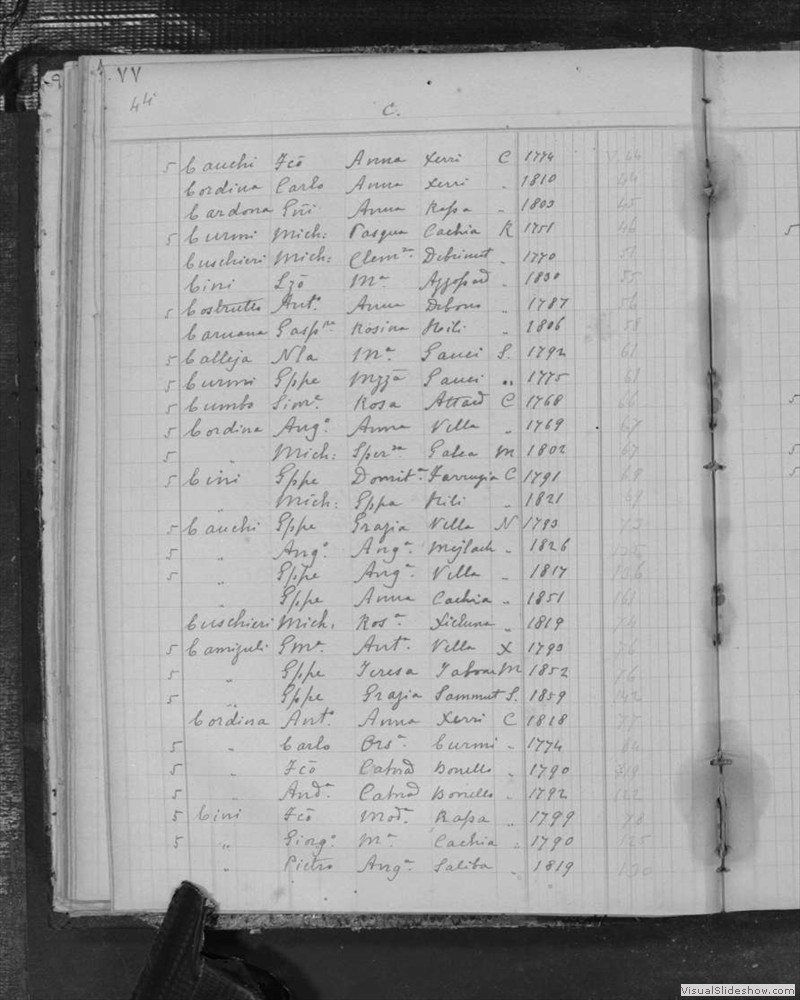 77
44
C.
5 Cauchi Fcō Anna Xerri C 1774 44
Cordina Carlo Anna Xerri „ 1810 44
Cardona Gñi Anna Rapa „ 1803 45
5 Curmi Mich: Pasqua Cachia R 1751 46
Cuschieri Mich: Clem.za Debrincat „ 1770
Cini Lzō M.a Azzopard „ 1830 55
5 Ant.o Anna Debono „ 1787 56
Caruana Gasp.re Rosina Hili „ 1806 58
5 Calleja Nla M.a Gauci S. 1792 61
5 Curmi Gppe Mzzā Gauci „ 1775 61
5 Cumbo Sim.e Rosa Attard C 1768 66
5 Cordina Ang.o Anna Vella „ 1769 67
5 „ Mich: Sper.za Galea M 1802 67
5 Cini Gppe Domit.a Farrugia C 1791 69
„ Mich: Gppa Hili „ 1821 69
5 Cauchi Gppe Grazia Vella N 1793
5 „ Ang.o Ang.a Mejlach „ 1826
5 „ Gppe Ang.a Vella „ 1817
„ Gppe Anna Cachia „ 1851 161
Cuschieri Mich: Ros.a Xicluna „ 1819
5 Camizuli Gm.a Ant.a Vella X 1793 76
5 „ Gppe Teresa Tabone M 1852 76
5 „ Gppe Grazia Sammut S. 1859 142
Cordina Ant.o Anna Xerri C 1818 77
5 „ Carlo Ors.a Curmi „ 1774
5 „ Fcō Catnā Bonello „ 1790
5 „ And.a Catnā Bonello „ 1792
5 Cini Fcō Mod.a Rapa „ 1799 78
5 „ Giorg.o M.a Cachia „ 1790 125
„ Pietro Ang.a Saliba „ 1819 130
5
5
5
5
VisualSlideshow.com